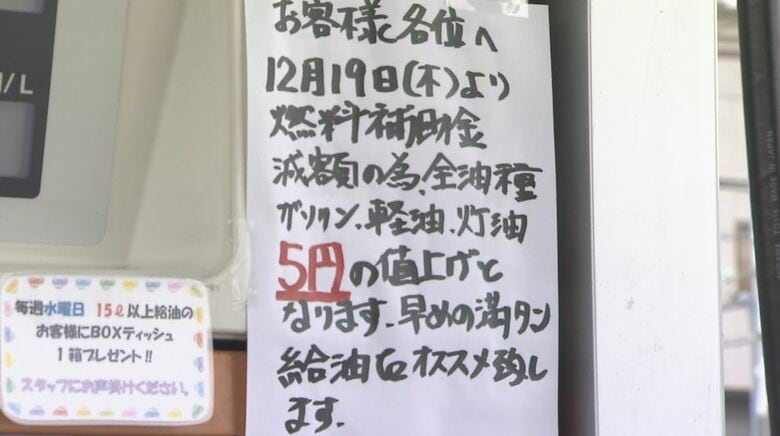 お客様各位へ
12月19日(木)より
燃料補助金
減額の為、全油種
ガソリン、軽油、灯油
5円の値上げと
なります、早めの満タン
給油をオススメ致し
ます.
/L
毎週水曜日 15ℓ以上給油の
お客様にBOXティッシュ
1箱プレゼント!!
スタッフにお声掛けください。